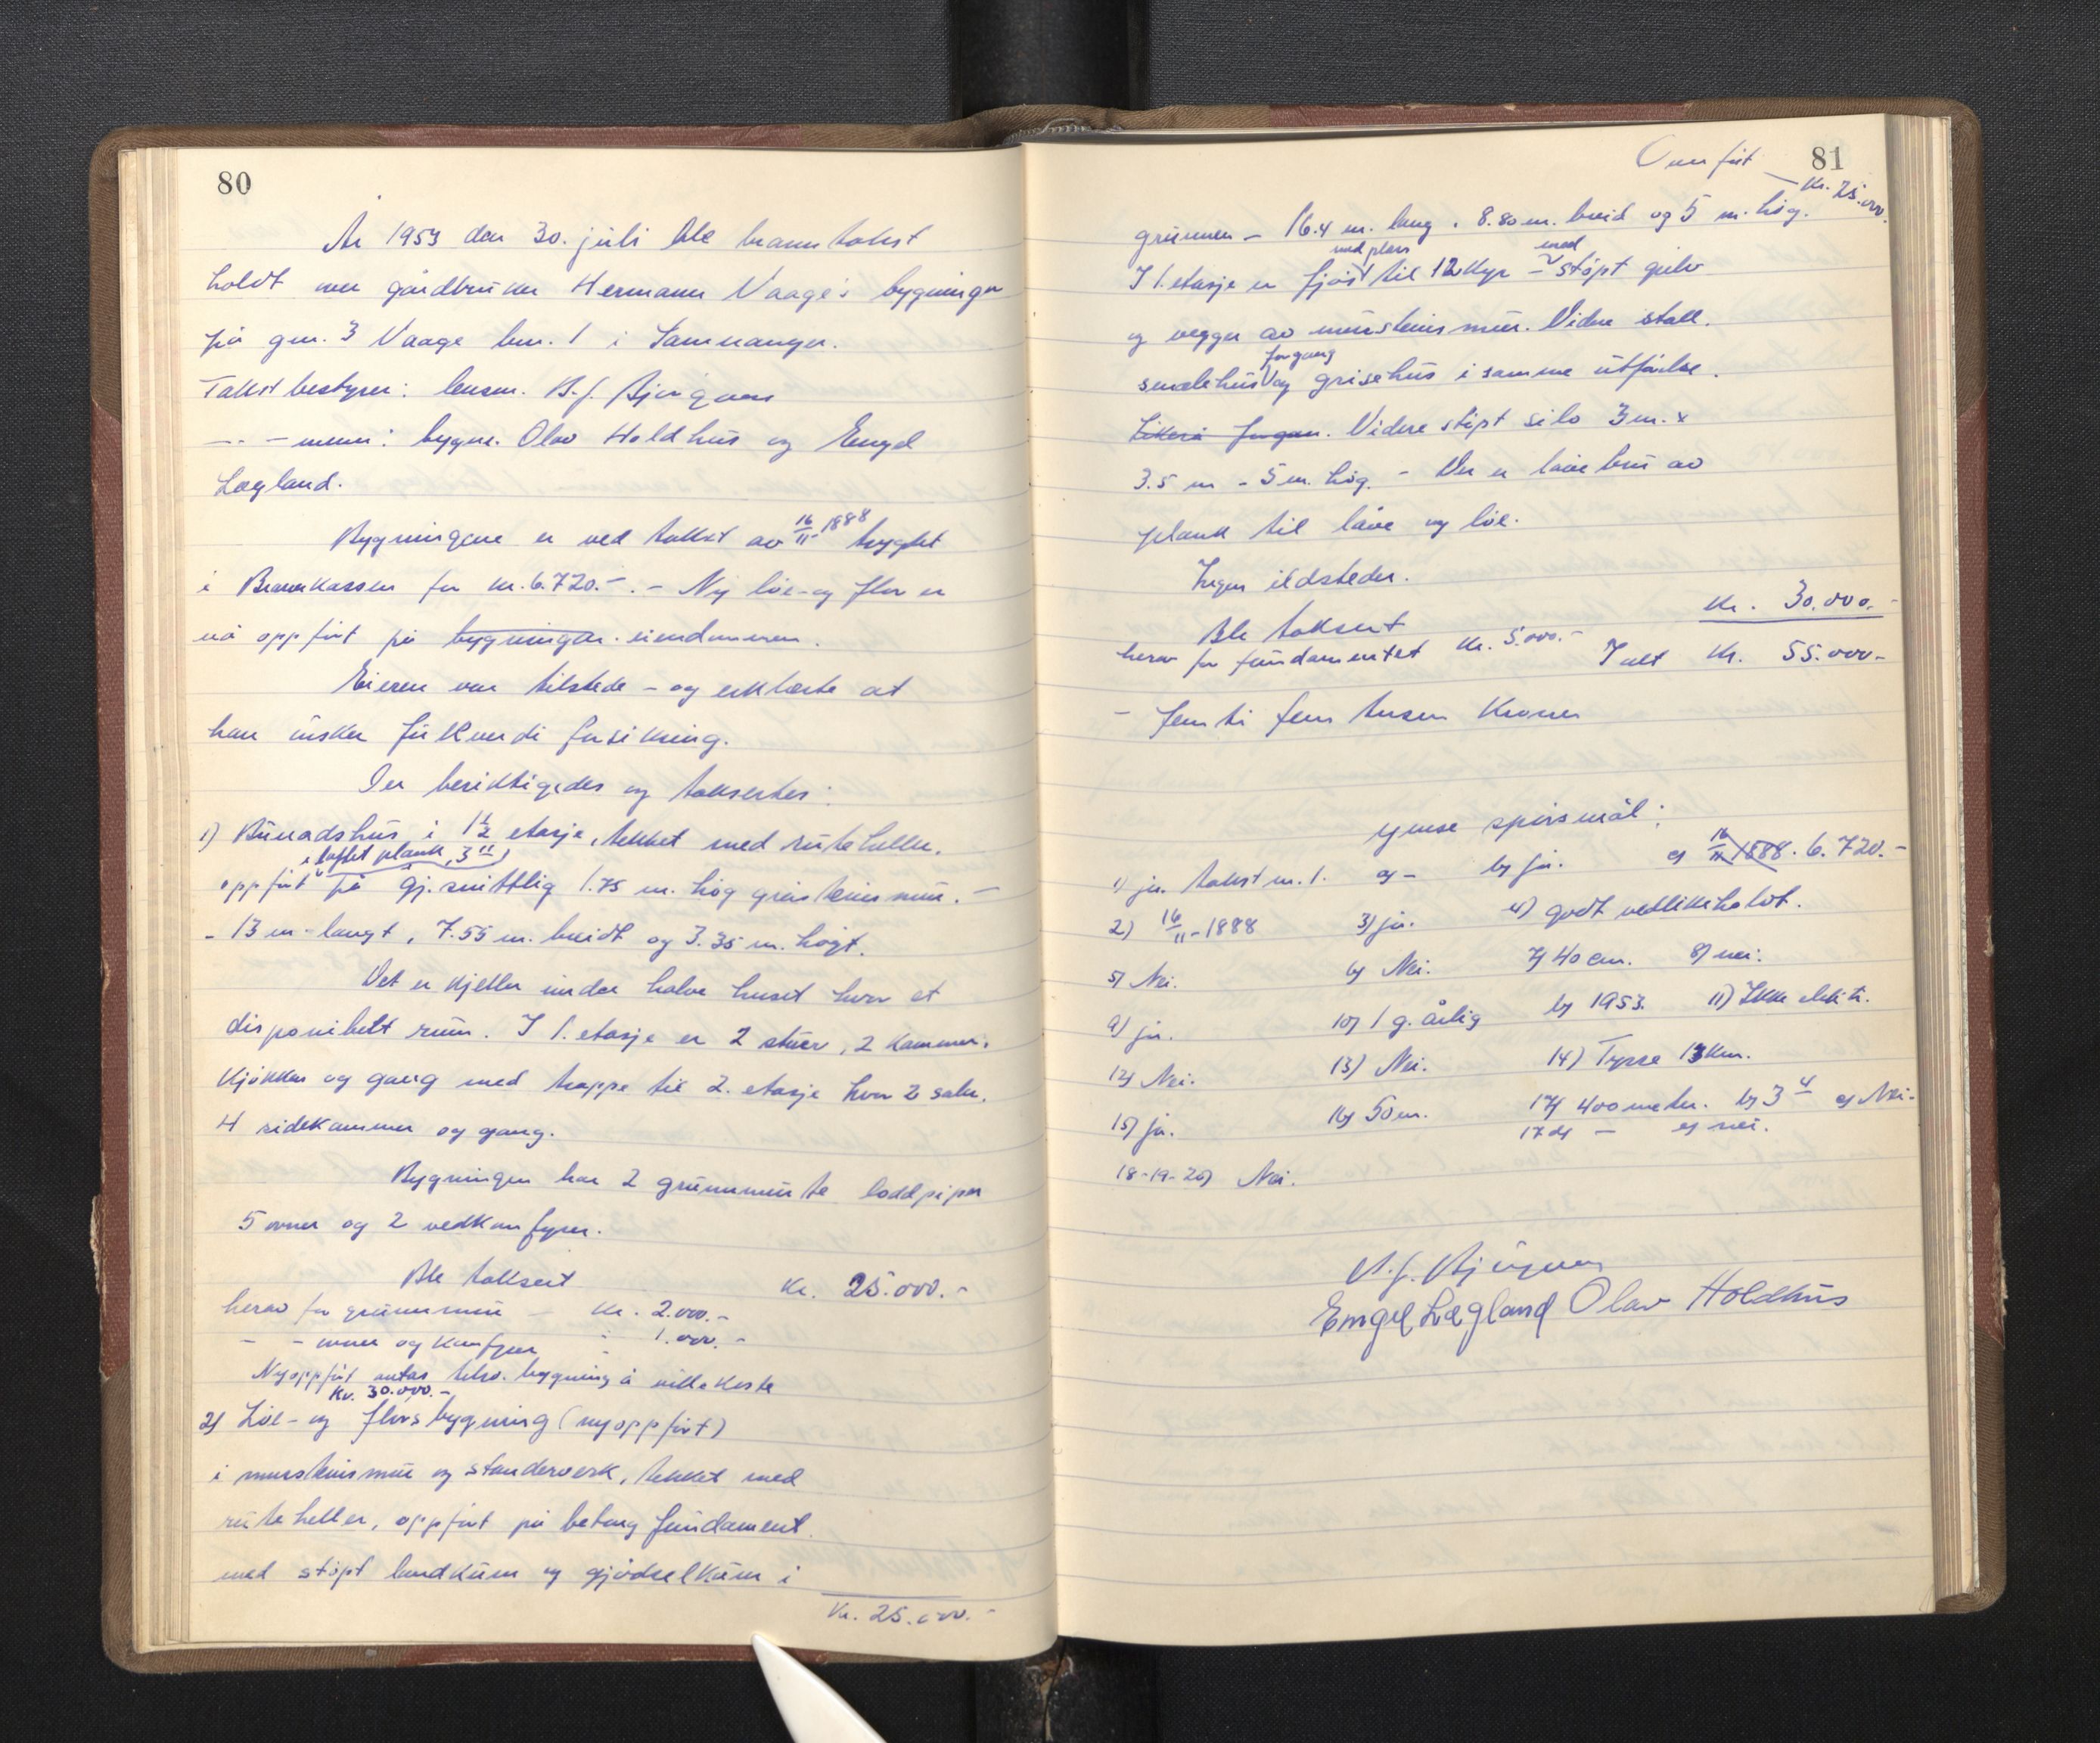 80
År 1953 den 30. juli ble branntakst
holdt over gårdbruker Hermann Vaage's bygninger
på gnr. 3 Vaage bnr. 1 i Samnanger.
Takstbestyrer: lensm. B. J. Bjørgven
-"- - menn: bygnm. Olav Holdhus og Engel
Lægland.
Bygningene er ved takst av 16/11-1888 trygdet
i Brannkassen for kr. 6.720.-. - Ny løe- og flor er
nå oppført på bygningar. eiendommen.
Eieren var tilstede - og erklærte at
han ønsker fullverdi forsikring.
Der besiktigedes og taksertes:
1) Bunadshus i 1½ etasje, tekket med ruteheller.
i laftet plank, 3"
oppført på gj.snittlig 1.75 m. høg gråsteinsmur. -
- 13 m. langt, 7.55 m. breidt og 3.35 m. høgt.
Det er kjeller under halve huset hvor et
disponibelt rum. I 1. etasje er 2 stuer, 2 kammer,
kjøkken og gang med trappe til 2. etasje hvor 2 saler,
4 sidekammer og gang.
Bygningen har 2 grunnmurte loddpiper
5 ovner og 2 vedkomfyrer.
Ble taksert kr. 25.000.-
herav for grunnmur - kr. 2.000.-
- - ovner og komfyrer - 1.000.-
Nyoppført antas bygning å ville koste
kr. 30.000.-
2) Løe- og florsbygning (nyoppført)
i mursteinsmur og standerverk, tekket med
ruteheller, oppført på betong fundament
med støpt landkum og gjødselkum i
Kr. 25.000.-
81
Overført - Kr. 25.000.
grunnen - 16.4 m. lang, 8.80 m. breid og 5 m. høg.
med plass med
I 1. etasje er fjøs til 12 kyr - støpt gulv
og vegger av mursteinsmur. Videre stall.
forgang
smalehus og grisehus i samme utførelse.
Likeså forgan. Videre støpt silo 3 m. x
3.5 m - 5 m. høg. - Der er låvebru av
plank til låve og løe.
Ingen ildsteder.
Ble taksert kr. 30.000.-
herav for fundamentet Kr. 5.000.- I alt Kr. 55.000.-
- Femti fem tusen kroner
Ymse spørsmål:
1) ja. takst nr. 1. a) - b) ja. c) 16/11 1888. 6.720.-
2) 16/11-1888 3) ja. 4) godt vedlikeholdt.
5) Nei. 6) Nei. 7) 40 cm. 8) nei.
9) ja. 10) 1 g. årlig b) 1953. 11) Ikke elektr.
12) Nei. 13) Nei. 14) Tysse 13 km.
15) ja. 16) 50 m. 17) 400 meter. b) 3" c) Nei.
17 d) - e) nei.
18-19-20) Nei.
B. J. Bjørgven
Engel Lægland Olav Holdhus